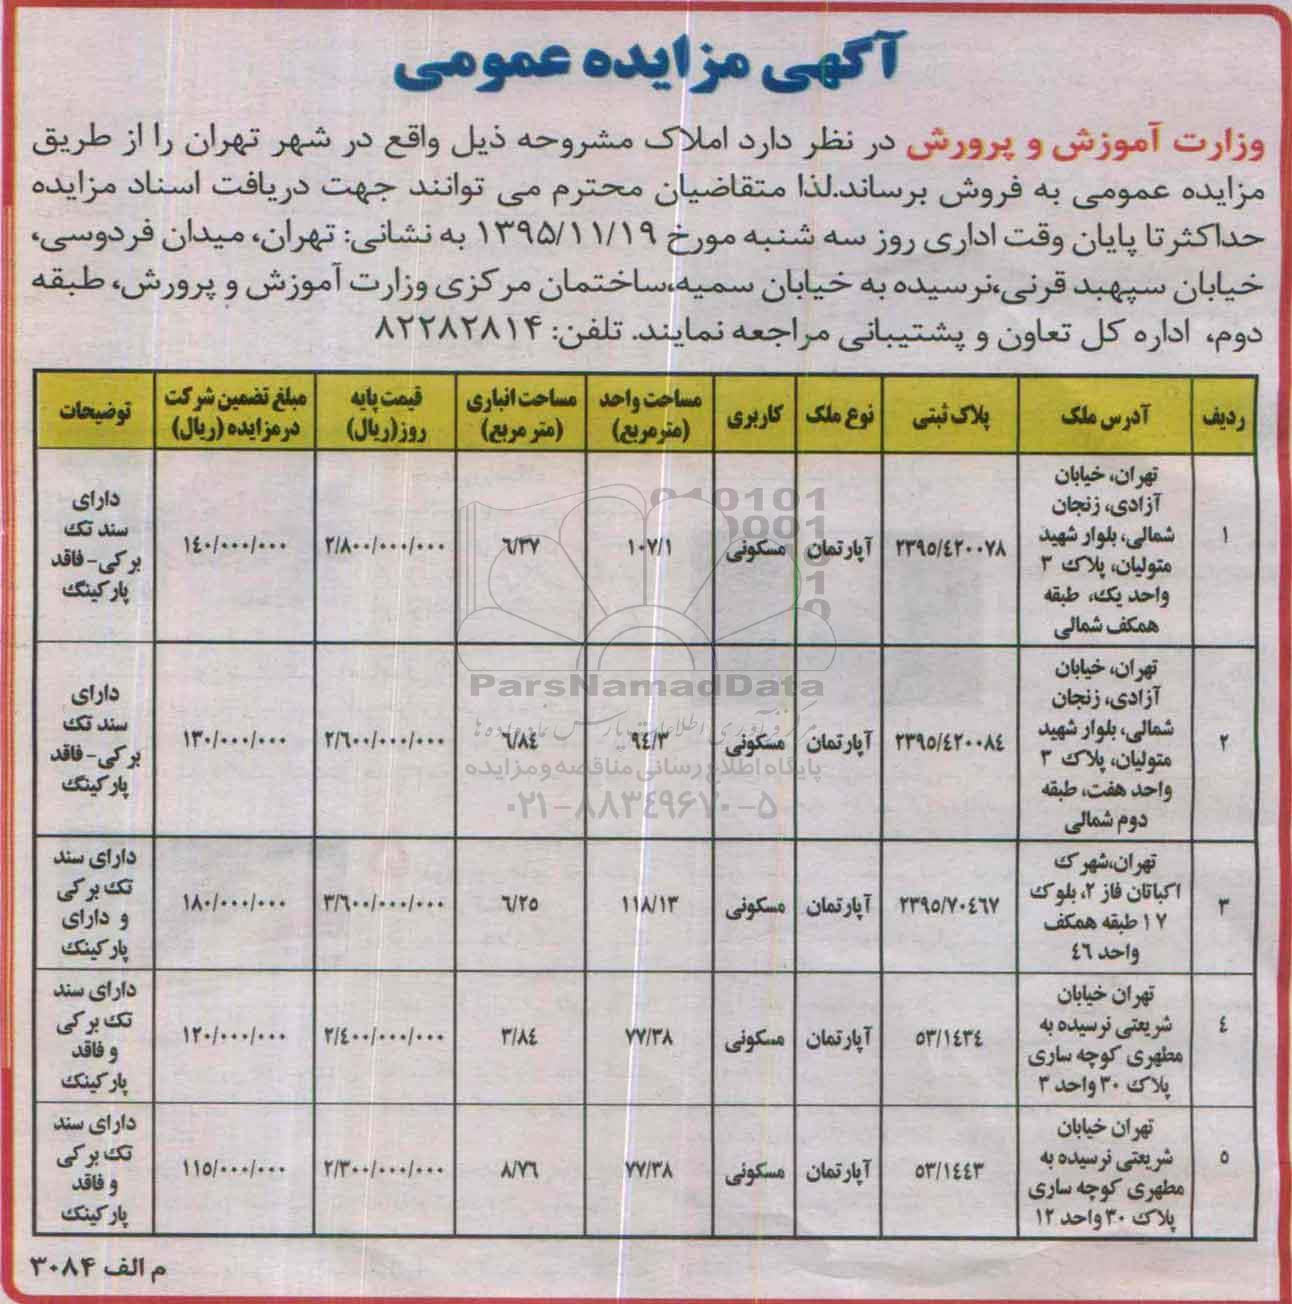 آگهی مزایده عمومی
وزارت آموزش و پرورش در نظر دارد املاک مشروحه ذیل واقع در شهر تهران را از طریق
مزایده عمومی به فروش برساند.لذا متقاضیان محترم می توانند جهت دریافت اسناد مزایده
حداکثر تا پایان وقت اداری روز سه شنبه مورخ ۱۳۹۵/۱۱/۱۹ به نشانی: تهران، میدان فردوسی،
خیابان سپهبد قرنی،نرسیده به خیابان سمیه،ساختمان مرکزی وزارت آموزش و پرورش، طبقه
دوم، اداره کل تعاون و پشتیبانی مراجعه نمایند. تلفن: ۸۲۲۸۲۸۱۴
ردیف آدرس ملک پلاک ثبتی نوع ملک کاربری مساحت واحد (مترمربع) مساحت انباری (متر مربع) قیمت پایه روز(ریال) مبلغ تضمین شرکت درمزایده (ریال) توضیحات
۱
تهران، خیابان
آزادی، زنجان
شمالی، بلوار شهید
متولیان، پلاک ۳
واحد یک، طبقه
همکف شمالی
۲۳۹۵/۴۲۰۰۷۸ آپارتمان مسکونی ۱۰۷/۱ ۶/۳۷ ۲/۸۰۰/۰۰۰/۰۰۰ ۱۴۰/۰۰۰/۰۰۰
دارای
سند تک
برکی- فاقد
پارکینگ
۲
تهران، خیابان
آزادی، زنجان
شمالی، بلوار شهید
متولیان، پلاک ۳
واحد هفت، طبقه
دوم شمالی
۲۳۹۵/۴۲۰۰۸۴ آپارتمان مسکونی ۹۴/۳ ۶/۸۴ ۲/۶۰۰/۰۰۰/۰۰۰ ۱۳۰/۰۰۰/۰۰۰
دارای
سند تک
برکی- فاقد
پارکینگ
۳
تهران،شهرک
اکباتان فاز ۲، بلوک
۱۷ طبقه همکف
واحد ۴۶
۲۳۹۵/۷۰۴۶۷ آپارتمان مسکونی ۱۱۸/۱۳ ۶/۲۵ ۳/۶۰۰/۰۰۰/۰۰۰ ۱۸۰/۰۰۰/۰۰۰
دارای سند
تک برکی
و دارای
پارکینک
۴
تهران خیابان
شریعتی نرسیده به
مطهری کوچه ساری
پلاک ۳۰ واحد ۳
۵۳/۱۴۳۴ آپارتمان مسکونی ۷۷/۳۸ ۳/۸۴ ۲/۴۰۰/۰۰۰/۰۰۰ ۱۲۰/۰۰۰/۰۰۰
دارای سند
تک برکی
و فاقد
پارکینک
۵
تهران خیابان
شریعتی نرسیده به
مطهری کوچه ساری
پلاک ۳۰ واحد ۱۲
۵۳/۱۴۴۳ آپارتمان مسکونی ۷۷/۳۸ ۸/۷۶ ۲/۳۰۰/۰۰۰/۰۰۰ ۱۱۵/۰۰۰/۰۰۰
دارای سند
تک برکی
و فاقد
پارکینک
م الف ۳۰۸۴
ParsNamadData
مرکز فرآوری اطلاعات پارس نماد داده ها
پایگاه اطلاع رسانی مناقصه و مزایده
۰۲۱-۸۸۳۴۹۶۷۰-۵